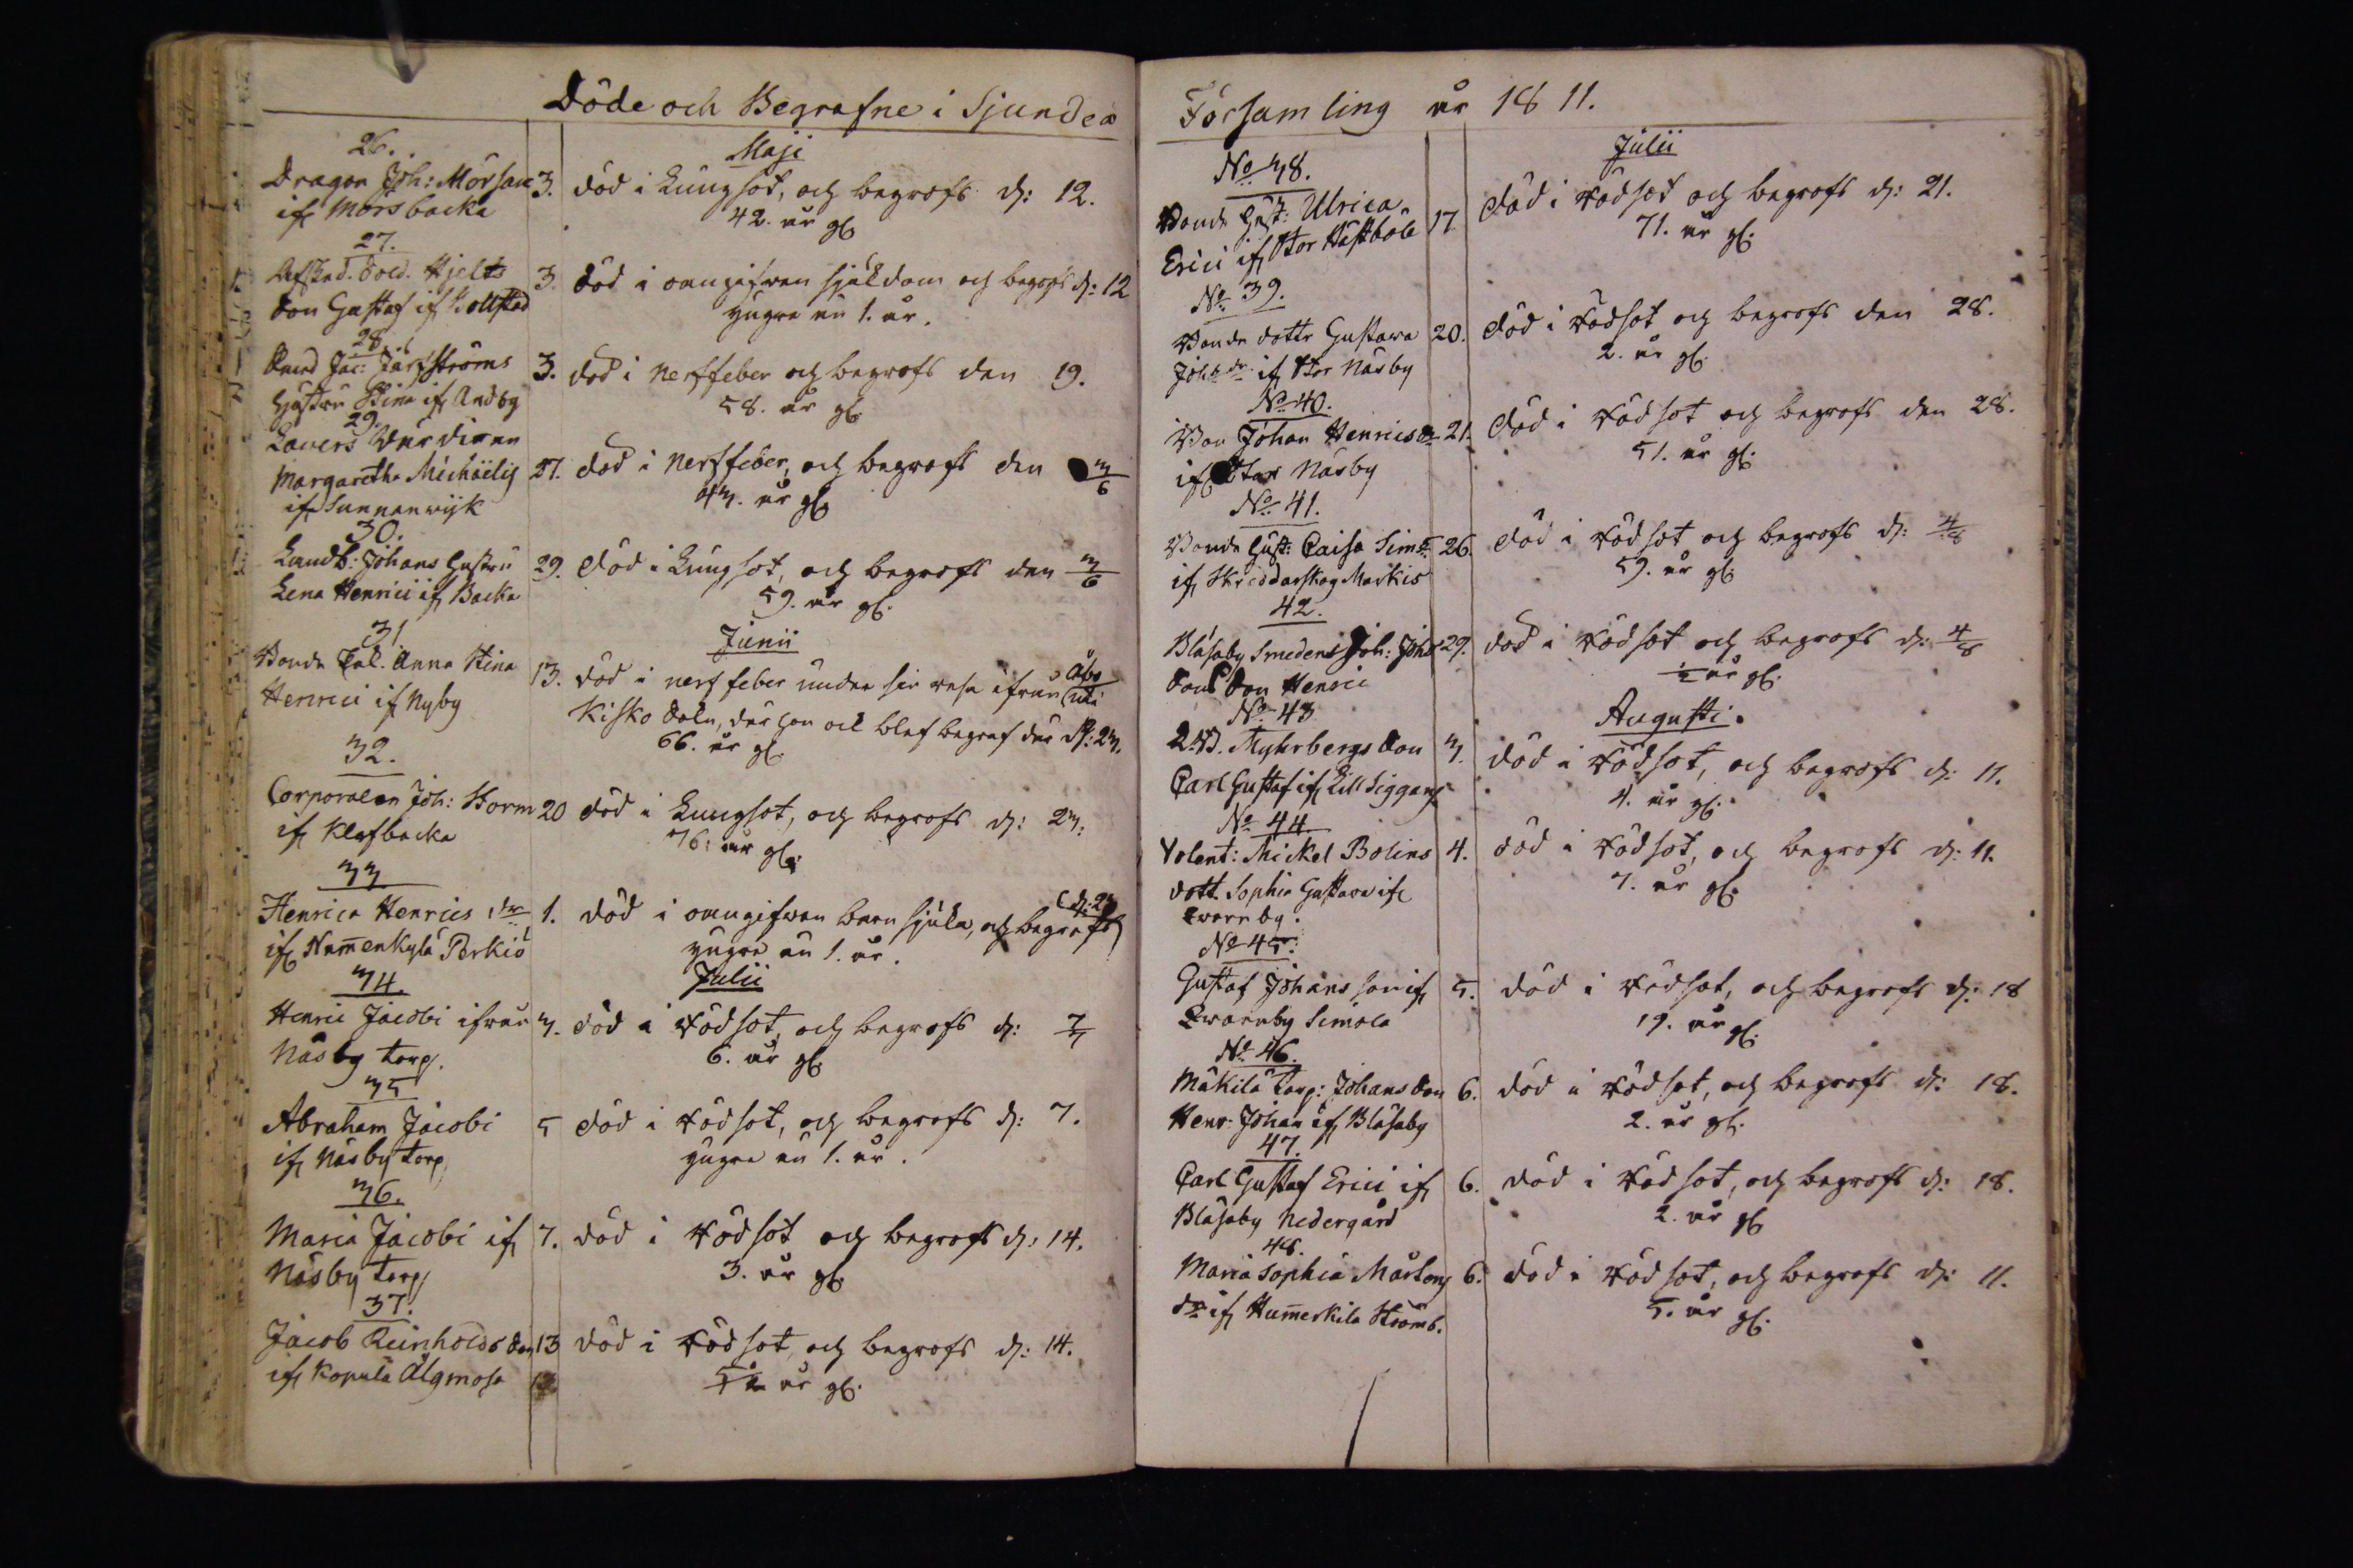 Döde och Begrafne i Sjundeå
26.
Maji
Dragon Joh: Mörsare 3. död i Lungsot, och begrofs d: 12.
ifr Mörsbacka
42. år gl.
27.
Afsked. Sold. Hjelts 3. död i oangifwen sjukdom och begrofs d: 12
Son Gustaf ifr
yngre än 1. år.
28.
Jac: Järfströms 3. död i Nerffeber och begrofs den 19.
hustru Stina ifr Andby
58. år gl.
29.
Margaretha Michaelis 27. död i Nerffeber, och begrofs den 3/6
ifr Sunnanwijk
43. år gl.
30.
Landb: Johans hustru 29. död i Lungsot, och begrofs den 3/6
Lena Henrici ifr Backa
59. år gl.
31.
Junii
Bonde Anna Stina 13. död i nerffeber under sin resa ifrån Åbo
Henrici ifr Nyby
Kisko Sokn, der hon ock blef begraf der d: 23.
66. år gl.
32.
Corporalen Joh: Storm 20 död i Lungsot, och begrofs d: 23:
ifr Klefbacka
76: år gl.
33
Henrica Henrics dr 1. död i oangifwen barnsjuka, och begrofs d: 23
ifr Hum̅enkylä Perkiö
yngre än 1. år.
34.
Julii
Henric Jacobi ifrån 3. död i Rödsot, och begrofs d: 7
Näsby torp.
6. år gl.
35
Abraham Jacobi 5 död i Rödsot, och begrofs d: 7.
ifr Näsby torp
yngre än 1. år.
36.
Maria Jacobi ifr 7. död i Rödsot och begrofs d: 14.
Näsby torp
3. år gl.
37.
Jacob Reinholds Son 13 död i Rödsot, och begrofs d: 14.
ifr Kopula Älgmosa
år gl.
Församling år 1811.
Julii
No 38.
Bonde hust: Ulrica 17. död i Rödsot och begrofs d: 21.
Erici ifr Stor Hästböle
71. år gl.
No 39.
Bonde dottr Gustava 20. död i Rödsot och begrofs den 28.
Joh: dr. ifr Stor Näsby
2. år gl.
No 40.
Bon Johan Henrics Sn 21. död i Rödsot och begrofs den 28.
ifr Stor Näsby
51. år gl.
No 41.
Bonde hust: Caisa Sims dr 26. död i Rödsot och begrofs d: 4/8
ifr Skreddarskog Markis
59. år gl.
42.
Blåsaby Smedens Joh: Johs 29. död i Rödsot och begrofs d: 4/8
Sons Son Henric
1/2 år gl.
No 43
Augusti.
Myhrbergs Son 3. död i Rödsot, och begrofs d: 11.
Carl Gustaf ifr Lill Siggans
4. år gl.
No 44
Volent: Mickel Bolins 4. död i Rödsot, och begrofs d: 11.
dott. Sophia Gustava ifr
Qvarnby.
7. år gl.
No 45.
Gustaf Johans son ifr 5. död i Rödsot, och begrofs d: 18
Qwarnby Simola
19. år gl.
No 46.
Mäkilä torp: Johans Son 6. död i Rödsot, och begrofs d: 18.
Henr: Johan ifr Blåsaby
2. år gl.
47.
Carl Gustaf Erici ifr 6. död i Rödsot, och begrofs d: 18.
Blåsaby Nedergård
2. år gl
48.
Maria Sophia Mårtens 6. död i Rödsot, och begrofs d: 11.
dr ifr Hum̅erkila Strömb.
5. år gl.